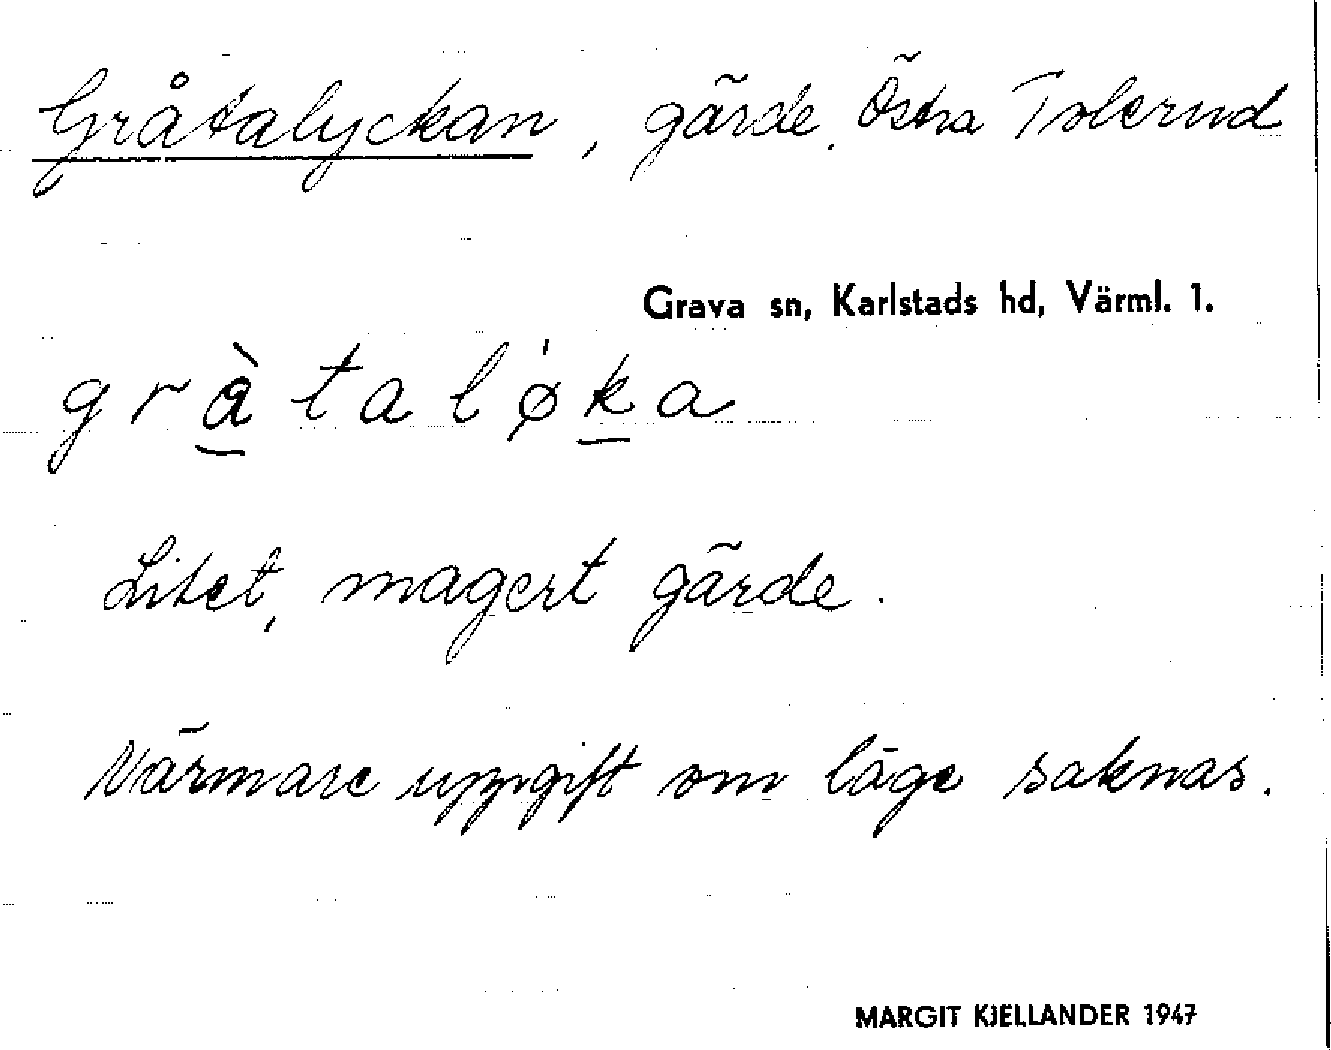 Gråtalyckan, gärde. Östra Tolerud
Grava sn, Karlstads hd, Värml. 1.
gràtaløka
Litet, magert gärde.
Närmare uppgift om läge saknas.
MARGIT KJELLANDER 1947